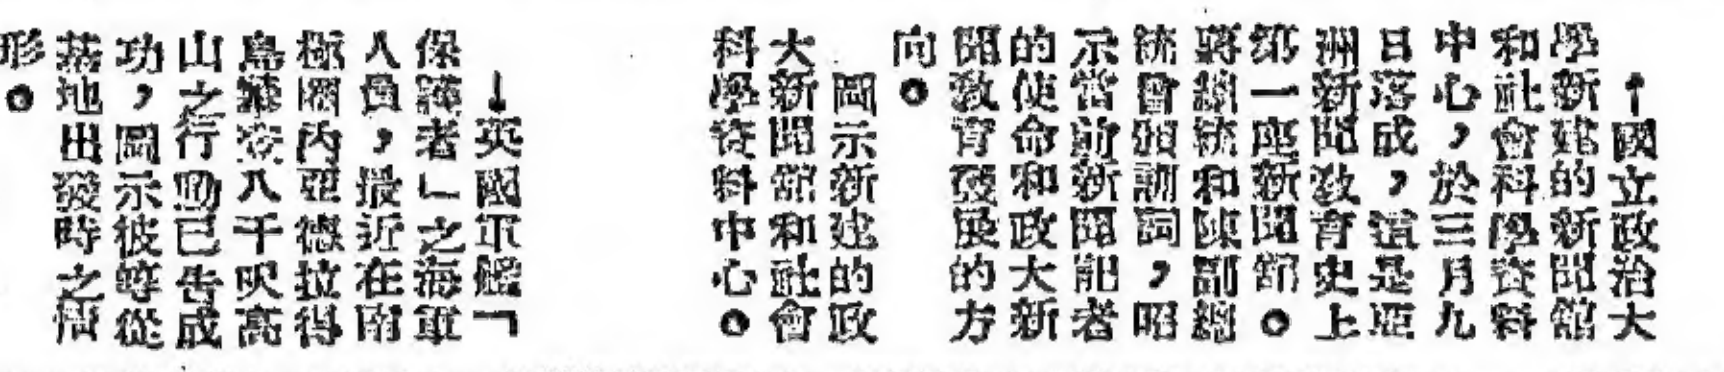 ↑國立政治大
學新建的新聞館
和社會科學資料
中心，於三月九
日落成，這是亞
洲新聞教育史上
第一座新聞館。
蔣總統和陳副總
統曾頒訓詞，昭
示當前新聞記者
的使命和政大新
聞教育發展的方
向。
圖示新建的政
大新聞館和社會
科學資料中心。
↓英國軍艦「
保護者」之海軍
人員，最近在南
極圈內亞德拉得
島攀登八千呎高
山之行動已告成
功，圖示彼等從
基地出發時之情
形。